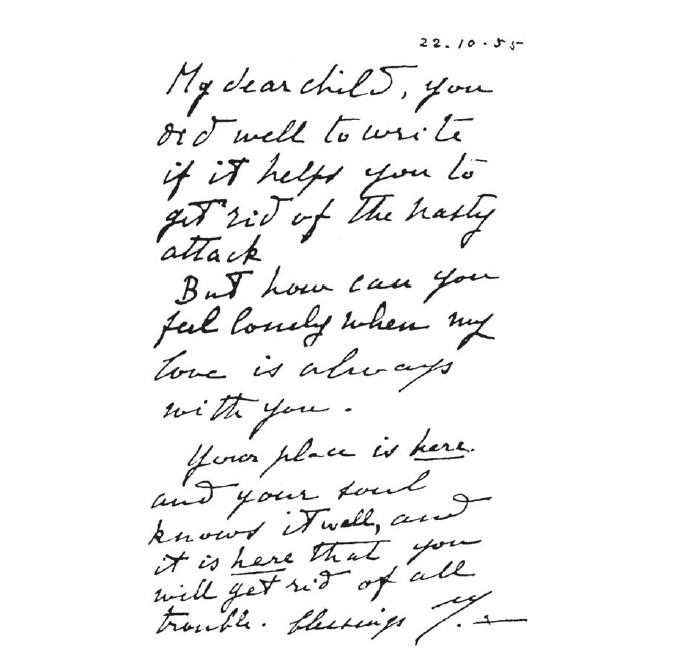 22.10.55
My dear child, you
did well to write
if it helps you to
get rid of the nasty
attack
But how can you
feel lonely when my
love is always
with you.
Your place is here.
and your soul
knows it well, and
it is here that you
will get rid of all
trouble. blessings